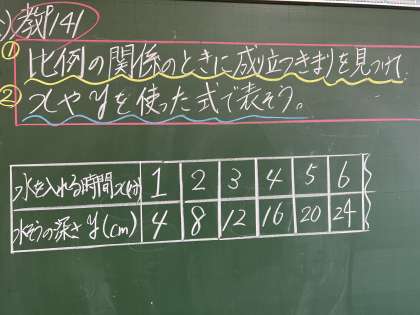 教P141
① 比例の関係のときに成り立つきまりを見つけて、
② xやyを使った式で表そう。
水を入れる時間x(分) 1 2 3 4 5 6
水そうの深さy(cm) 4 8 12 16 20 24